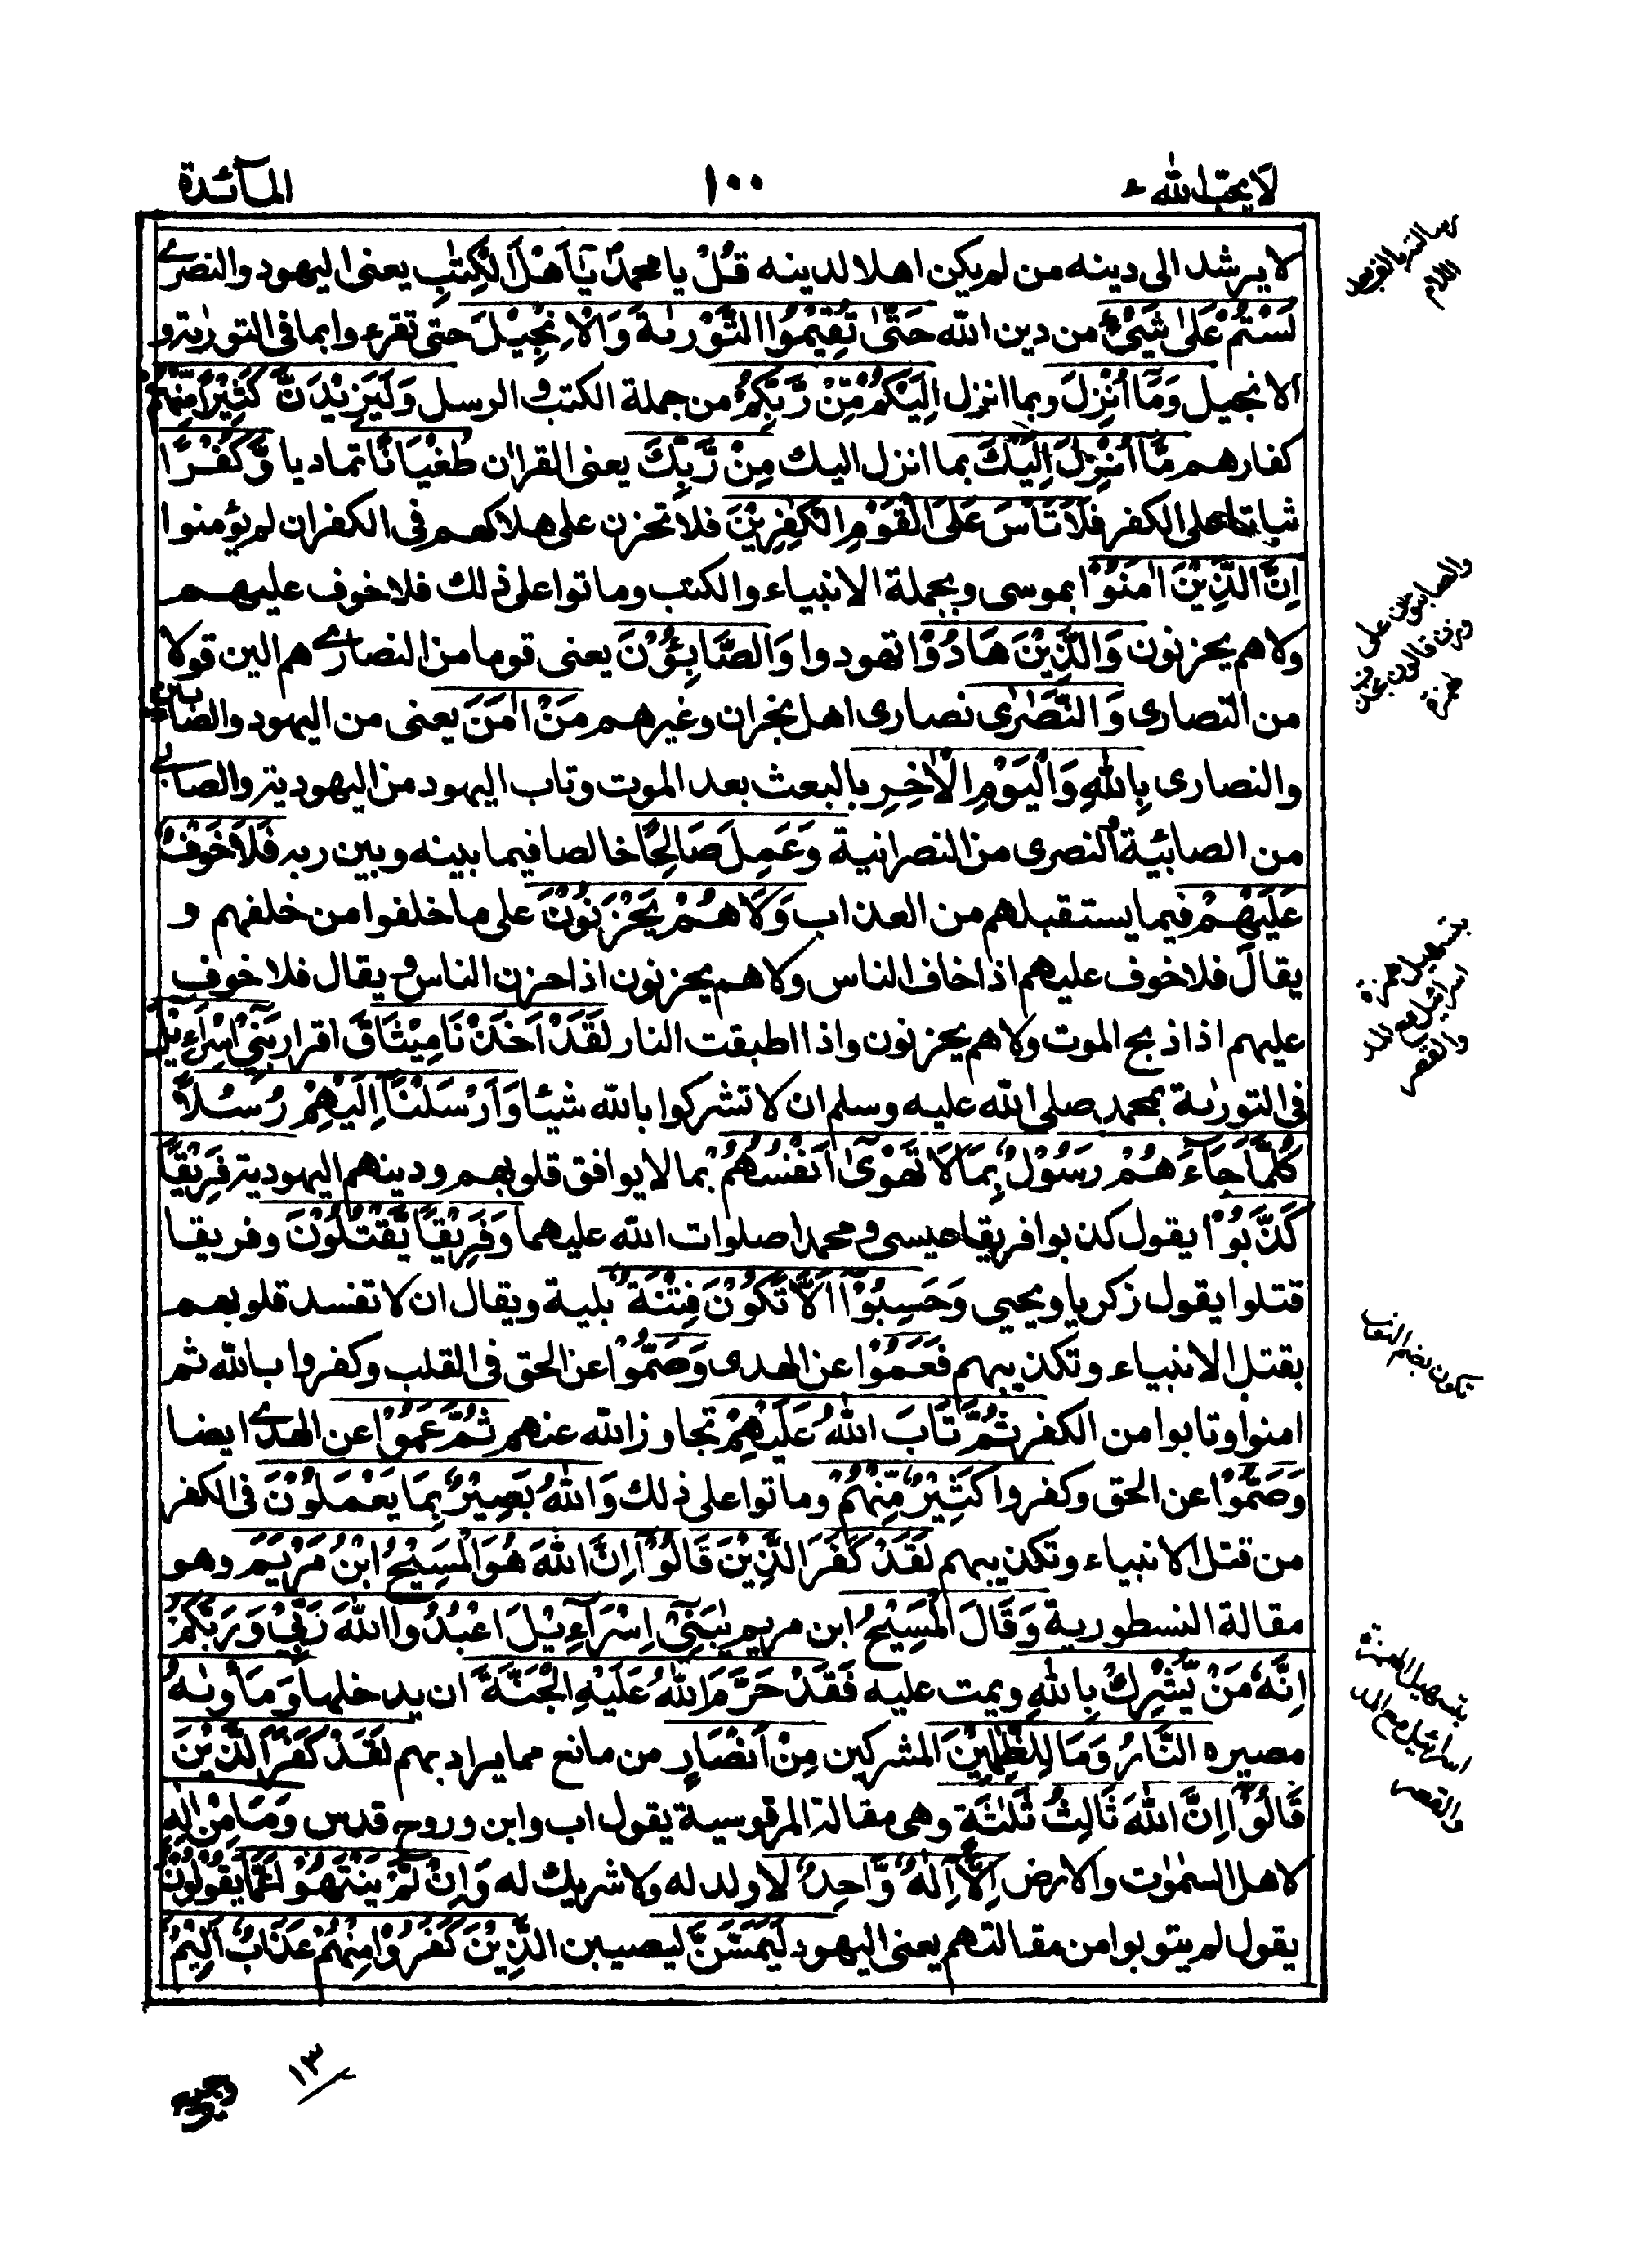 لا يحب الله ٦
١٠٠
المآئدة
لا يرشد الى دينه من لم يكن اهلا لدينه قُلْ يا محمدُ يَآ اَهْلَ الْكِتٰبِ يعنى اليهود والنصرے
لَسْتُمْ عَلٰى شَيْءٍ من دين الله حَتّٰى تُقِيْمُوا التَّوْرٰىةَ وَالْاِنْجِيْلَ حتى تقرءوا بما فى التورٰىة و
الانجيل وَمَآ اُنْزِلَ وبما انزل اِلَيْكُمْ مِّنْ رَّبِّكُمْ من جملة الكتب و الرسل وَلَيَزِيْدَنَّ كَثِيْرًا مِّنْهُمْ
كفارهم مَّآ اُنْزِلَ اِلَيْكَ بما انزل اليك مِنْ رَّبِّكَ يعنى القرا​ن طُغْيَانًا تماديا وَّكُفْرًا
ثباتا على الكفر فَلَا تَأْسَ عَلَى الْقَوْمِ الْكٰفِرِيْنَ فلا تحزن على هلاكهم فى الكفران لم يؤمنوا
اِنَّ الَّذِيْنَ اٰمَنُوْا بموسى وبجملة الانبياء والكتب وماتوا على ذلك فلا خوف عليهم
ولا هم يحزنون وَالَّذِيْنَ هَادُوْا تهودوا وَالصَّابِئُوْنَ يعنى قوما من النصارے هم الين قولا
من النصارى وَالنَّصٰرٰى نصارى اهل نجران وغيرهم مَنْ اٰمَنَ يعنى من اليهود والصابئين
والنصارى بِاللّٰهِ وَالْيَوْمِ الْاٰخِرِ بالبعث بعد الموت وتاب اليهود من اليهودية والصابے
من الصابئية والنصرى من النصرانية وَعَمِلَ صَالِحًا خالصا فيما بينه وبين ربه فَلَا خَوْفٌ
عَلَيْهِمْ فيما يستقبلهم من العذاب وَلَا هُمْ يَحْزَنُوْنَ على ما خلفوا من خلفهم و
يقال فلا خوف عليهم اذا خاف الناس ولا هم يحزنون اذا حزن الناس و يقال فلا خوف
عليهم اذا ذبح الموت ولا هم يحزنون واذا اطبقت النار لَقَدْ اَخَذْنَا مِيْثَاقَ اقرار بَنِيْٓ اِسْرَآءِيْلَ
فى التورٰىة بمحمد صلى الله عليه وسلم ان لا تشركوا بالله شيئا وَاَرْسَلْنَآ اِلَيْهِمْ رُسُلًا
كُلَّمَا جَآءَهُمْ رَسُوْلٌ بِمَا لَا تَهْوٰىٓ اَنْفُسُهُمْ بما لا يوافق قلوبهم ودينهم اليهودية فَرِيْقًا
كَذَّبُوْا يقول كذبوا فريقا عيسى و محمدا صلوات الله عليهما وَفَرِيْقًا يَّقْتُلُوْنَ وفريقا
قتلوا يقول زكريا ويحيى وَحَسِبُوْٓا اَلَّا تَكُوْنَ فِتْنَةٌ بلية ويقال ان لا تفسد قلوبهم
بقتل الانبياء وتكذيبهم فَعَمُوْا عن الهدى وَصَمُّوْا عن الحق فى القلب وكفروا بالله ثم
امنوا وتابوا من الكفر ثُمَّ تَابَ اللّٰهُ عَلَيْهِمْ تجاوز الله عنهم ثُمَّ عَمُوْا عن الهدے ايضا
وَصَمُّوْا عن الحق وكفروا كَثِيْرٌ مِّنْهُمْ وماتوا على ذلك وَاللّٰهُ بَصِيْرٌۢ بِمَا يَعْمَلُوْنَ فى الكفر
من قتل الانبياء وتكذيبهم لَقَدْ كَفَرَ الَّذِيْنَ قَالُوْٓا اِنَّ اللّٰهَ هُوَ الْمَسِيْحُ ابْنُ مَرْيَمَ وهو
مقالة النسطورية وَقَالَ الْمَسِيْحُ ابن مريم يٰبَنِيْٓ اِسْرَآءِيْلَ اعْبُدُوا اللّٰهَ رَبِّيْ وَرَبَّكُمْ
اِنَّهٗ مَنْ يُّشْرِكْ بِاللّٰهِ ويمت عليه فَقَدْ حَرَّمَ اللّٰهُ عَلَيْهِ الْجَنَّةَ ان يدخلها وَمَأْوٰىهُ
مصيره النَّارُ وَمَا لِلظّٰلِمِيْنَ المشركين مِنْ اَنْصَارٍ من مانع مما يراد بهم لَقَدْ كَفَرَ الَّذِيْنَ
قَالُوْٓا اِنَّ اللّٰهَ ثَالِثُ ثَلٰثَةٍ وهى مقالة المرقوسية يقول اب وابن وروح قدس وَمَا مِنْ اِلٰهٍ
لاهل السمٰوٰت والارض اِلَّآ اِلٰهٌ وَّاحِدٌ لا ولد له ولا شريك له وَاِنْ لَّمْ يَنْتَهُوْا عَمَّا يَقُوْلُوْنَ
يقول لم يتوبوا من مقالتهم يعنى اليهود لَيَمَسَّنَّ ليصيبن الَّذِيْنَ كَفَرُوْا مِنْهُمْ عَذَابٌ اَلِيْمٌ
والصابيون على
ورش قالون بحذف
همزة
بتسهيل همزة
اسرائيل مع المد
والقصر
تكون بضم النون
بتسهيل الهمزة
اسرائيل مع المد
والقصر
١٣